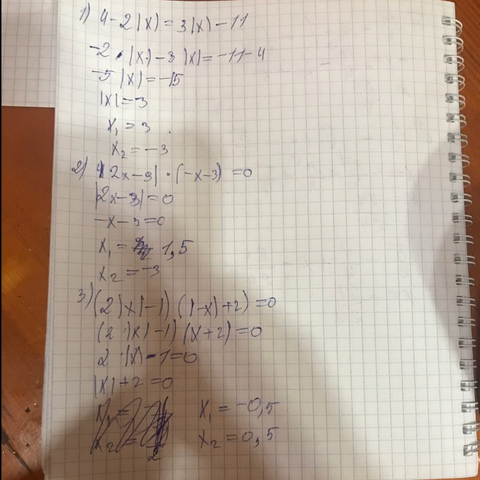 1) 4-2|x|=3|x|-11
-2·|x|-3|x|=-11-4
-5|x|=-15
|x|=3
x₁=3.
x₂=-3
2) |2x-3|·(-x-3)=0
|2x-3|=0
-x-3=0
x₁= 1,5
x₂=-3
3) (2|x|-1)(|-x|+2)=0
(2·|x|-1)(x+2)=0
2·|x|-1=0
|x|+2=0
x₁=-0,5
x₂=0,5